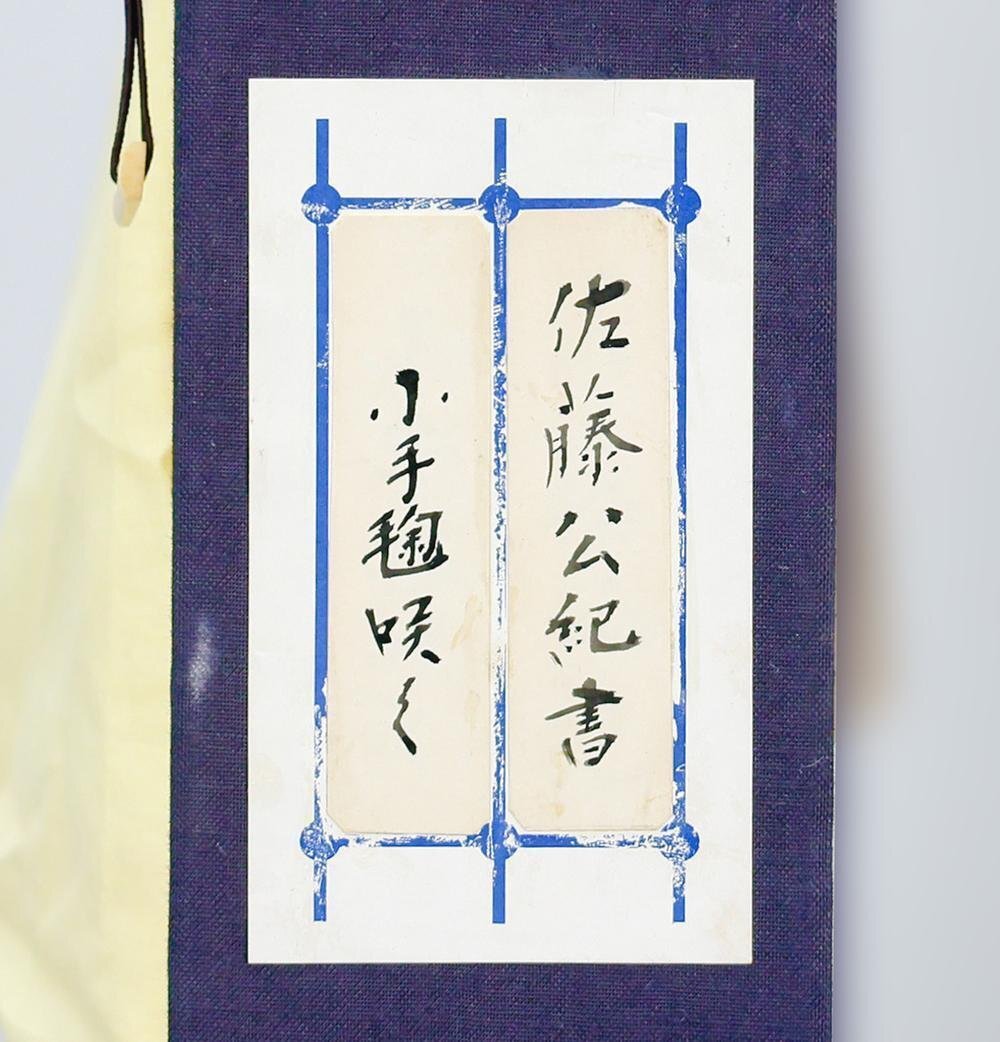 佐藤公紀書
小手毱咲く